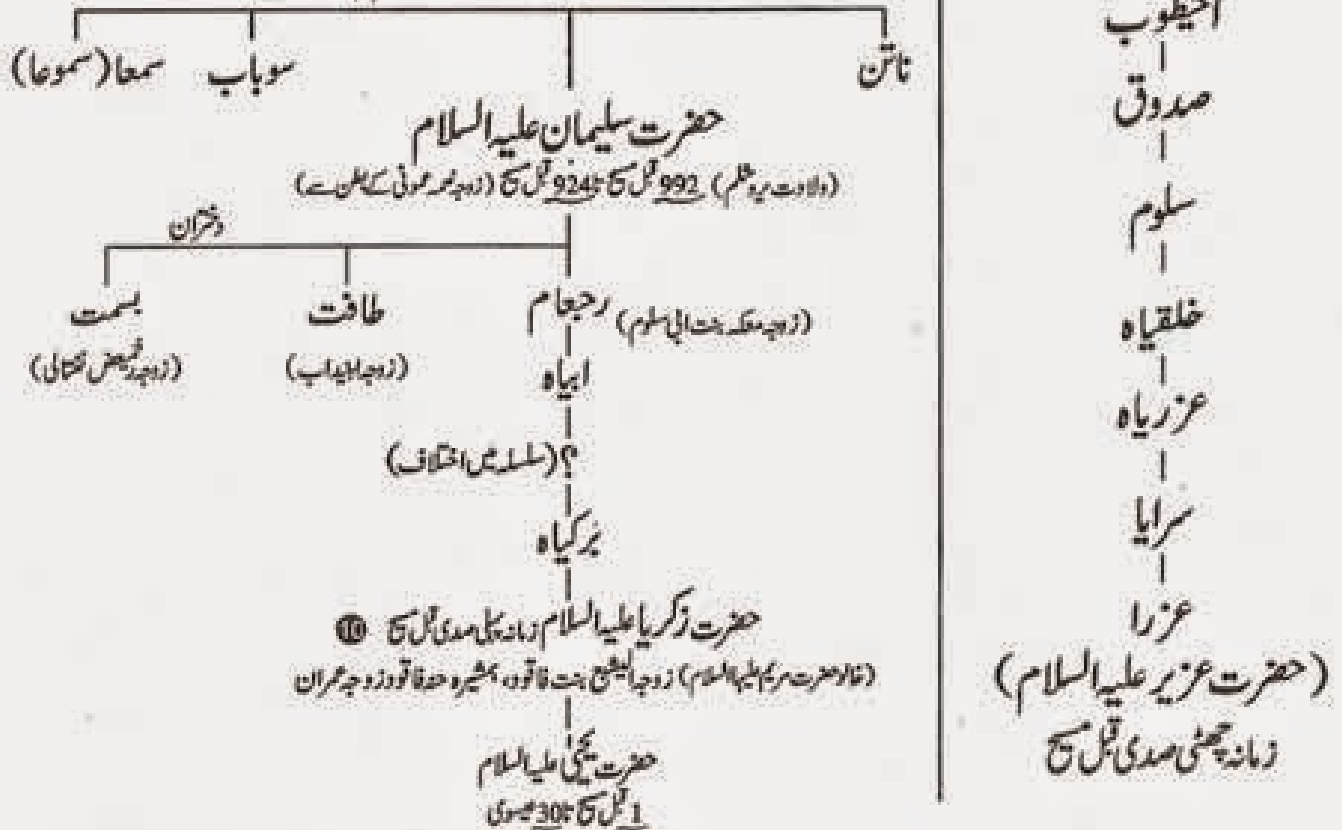 ناتن
سوباب
سمعا (سموعا)
حضرت سلیمان علیہ السلام
(ولادت یروشلم) 992 قبل مسیح تا 924 قبل مسیح (زوجہ کے بطن سے)
دختران
رجعام (زوجہ معکہ بنت ابی سلوم)
طافت
بسمت
(زوجہ)
(زوجہ)
ابیاہ
؟ (سلسلہ میں اختلاف)
بُرکیاہ
حضرت زکریا علیہ السلام زمانہ پہلی صدی قبل مسیح
(خالو حضرت مریم علیہا السلام) زوجہ الیشع بنت فاقود، ہمشیرہ زوجہ عمران
حضرت یحییٰ علیہ السلام
1 قبل مسیح تا 30 عیسوی
اخیطوب
صدوق
سلوم
خلقیاہ
عزریاہ
سرایا
عزرا
(حضرت عزیر علیہ السلام)
زمانہ چھٹی صدی قبل مسیح